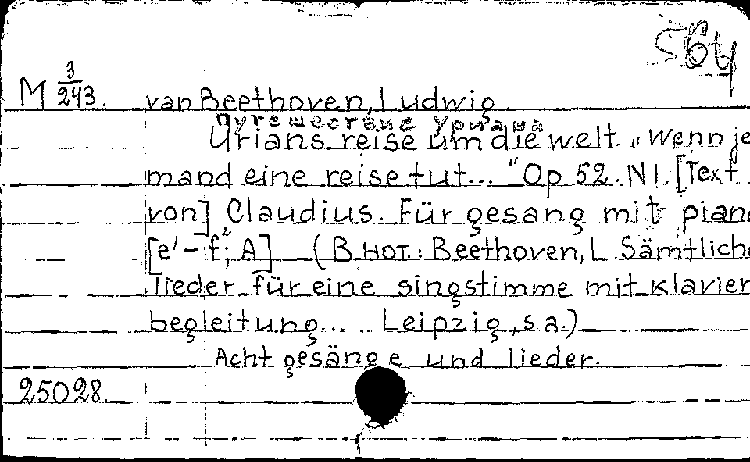 564
M 3/243. van Beethoven, Ludwig
Путешествие Уриана
Urians reise um die welt „Wenn je
mand eine reise tut... " Op 52. N1. [Text
von] Claudius. Für gesang mit pian
[e' – f", A] (В нот.: Beethoven, L Sämtlich
lieder für eine singstimme mit klavier
begleitung... Leipzig, s a.)
Acht gesänge und lieder.
25028.